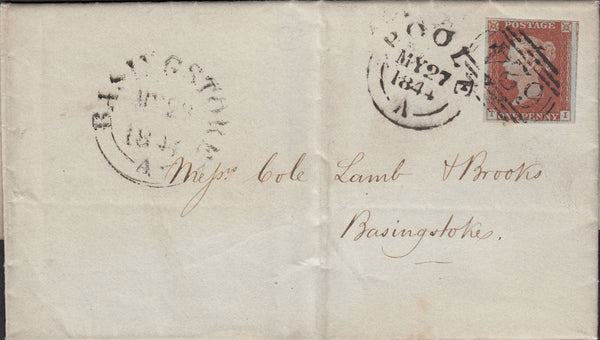 POOLE
MY 27
1844
A
POSTAGE
ONE PENNY
T I
BASINGSTOKE
MY 28
1844
A
Messrs Cole Lamb & Brooks
Basingstoke.